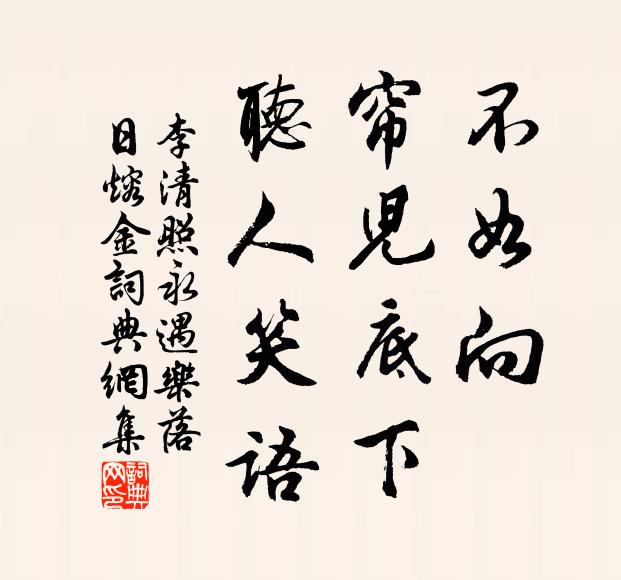 不如向
帘兒底下
聽人笑語
李清照永遇樂落
日熔金詞典網集
詞典
网印